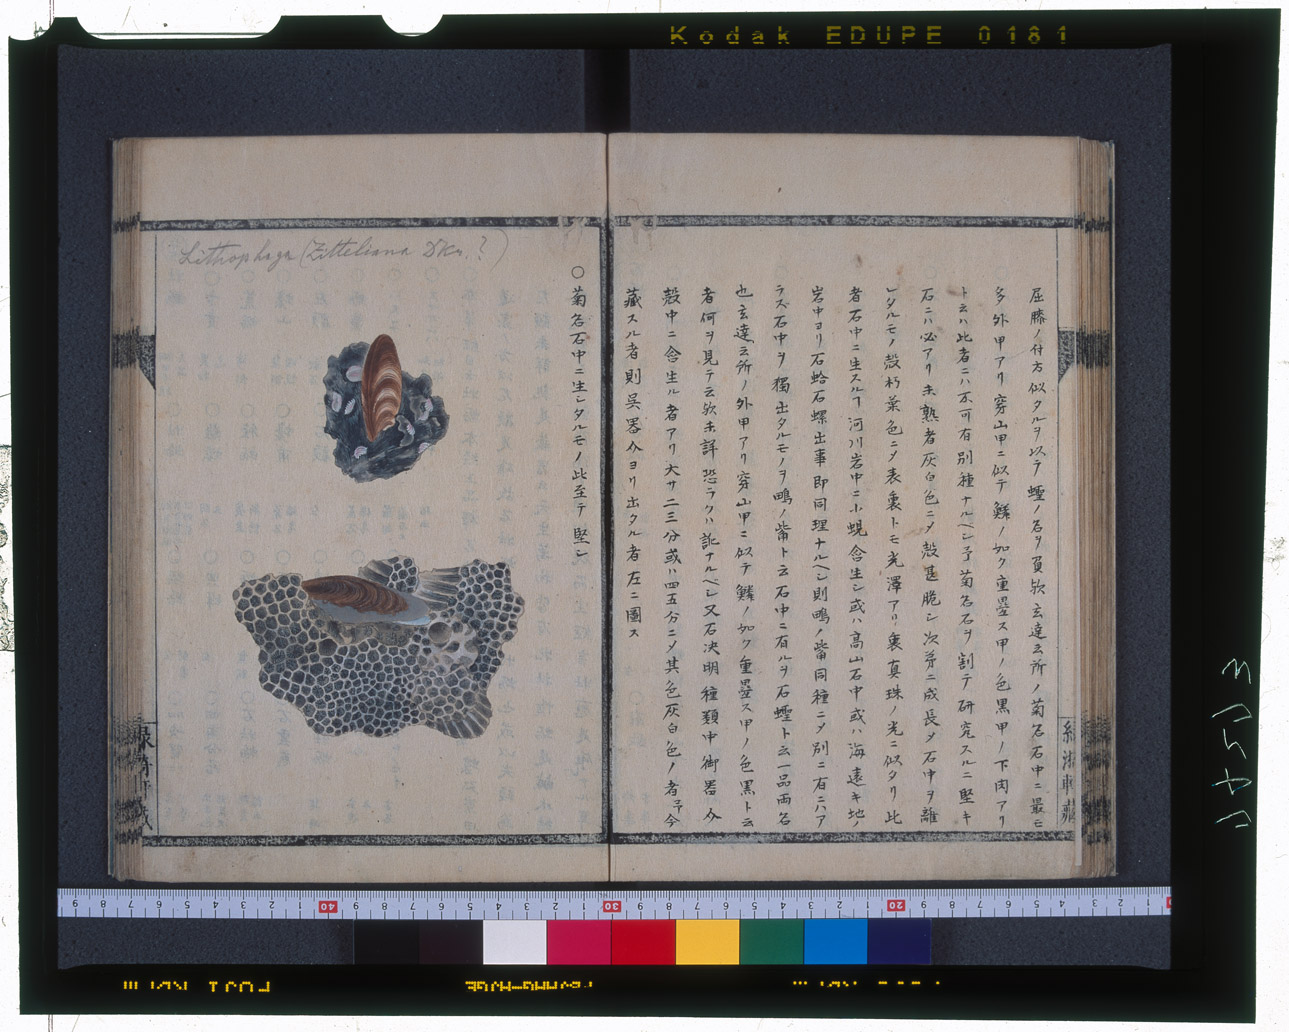 Kodak EDUPE 0181
屈膝ノ付方似タルヲ以テ蟶ノ名ヲ負欤玄達云所ノ菊名石中ニ最モ
多外甲アリ穿山甲ニ似テ鱗ノ如ク重疊ス甲ノ色黒甲ノ下肉アリ
ト云ハ此者ニハ不可有別種ナルヘシ予菊名石ヲ割テ研究スルニ堅キ
石ニハ必アリ未熟者灰白色ニメ殻甚脆シ次第ニ成長メ石中ヲ離
レタルモノ殻朽葉色ニメ表裏トモ光澤アリ裏真珠ノ光ニ似タリ此
者石中ニ生スルヿ河川岩中ニ小蜆含生シ或ハ高山石中或ハ海遠キ地ノ
岩中ヨリ石蛤石螺出事即同理ナルヘシ則鴫ノ觜同種ニメ別ニ有ニハア
ラズ石中ヲ獨出タルモノヲ鴫ノ觜ト云石中ニ有ルヲ石蟶ト云一品両名
也玄達云所ノ外甲アリ穿山甲ニ似テ鱗ノ如ク重疊ス甲ノ色黒ト云
者何ヲ見テ云欤未詳恐ラクハ訛ナルベシ又石决明種類中御器介
殻中ニ含生ル者アリ大サ二三分或ハ四五分ニメ其色灰白色ノ者予今
藏スル者則呉器介ヨリ出タル者左ニ圖ス
Lithophaga (Zitteliana Dkr.?)
○菊名石中ニ生シタルモノ此至テ堅シ